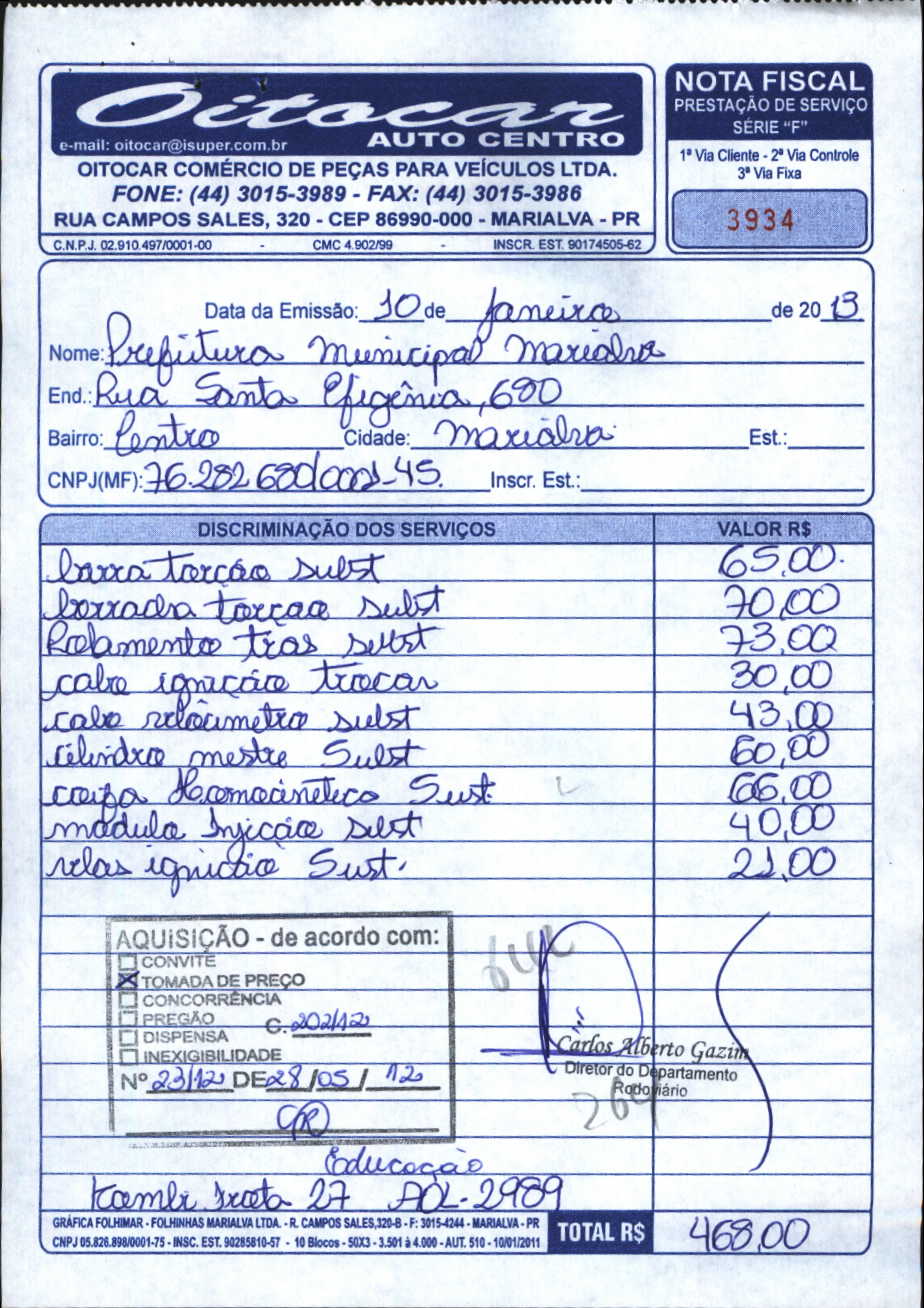 Oitocar
e-mail: oitocar@isuper.com.br AUTO CENTRO
OITOCAR COMÉRCIO DE PEÇAS PARA VEÍCULOS LTDA.
FONE: (44) 3015-3989 - FAX: (44) 3015-3986
RUA CAMPOS SALES, 320 - CEP 86990-000 - MARIALVA - PR
C.N.P.J. 02.910.497/0001-00 - CMC 4.902/99 - INSCR. EST. 90174505-62
NOTA FISCAL
PRESTAÇÃO DE SERVIÇO
SÉRIE “F”
1ª Via Cliente - 2ª Via Controle
3ª Via Fixa
3934
Data da Emissão: 10 de Janeiro de 2013
Nome: Prefeitura Municipal Marialva
End.: Rua Santa Efigênia, 680
Bairro: Centro Cidade: Marialva Est.:
CNPJ(MF): 76.282.680/0001-45. Inscr. Est.:
DISCRIMINAÇÃO DOS SERVIÇOS VALOR R$
barra torção subst 65,00
borracha torçao subst 70,00
Rolamento tras subst 73,00
cabo ignição trocar 30,00
cabo velocimetro subst 43,00
cilindro mestre Subst 60,00
coifa Homocinetico Sust 66,00
modulo Injeção subst 40,00
relas ignicão Sust. 21,00
AQUISIÇÃO - de acordo com:
CONVITE
TOMADA DE PREÇO
CONCORRÊNCIA
PREGÃO C. 202/12
DISPENSA
INEXIGIBILIDADE
Nº 23/12 DE 28/05/12
Carlos Alberto Gazim
Diretor do Departamento
Rodoviário
264
Educação
Kombi frota 27 AOL-2989
GRÁFICA FOLHIMAR - FOLHINHAS MARIALVA LTDA. - R. CAMPOS SALES,320-B - F: 3015-4244 - MARIALVA - PR
CNPJ 05.826.898/0001-75 - INSC. EST. 90285810-57 - 10 Blocos - 50X3 - 3.501 à 4.000 - AUT. 510 - 10/01/2011
TOTAL R$ 468,00